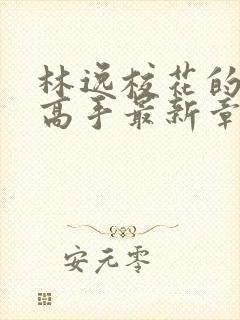 林逸校花的
高手最新章
安元零